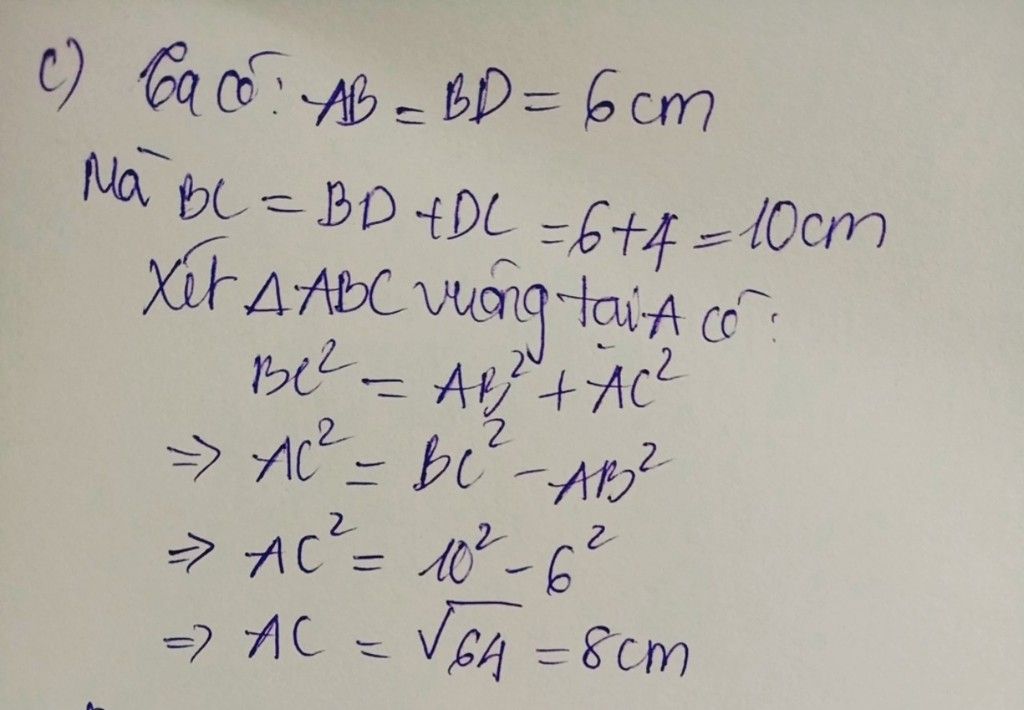 c) Ta có: AB = BD = 6 cm
Mà BC = BD + DC = 6+4 = 10cm
Xét Δ ABC vuông tại A có:
BC² = AB² + AC²
⇒ AC² = BC² - AB²
⇒ AC² = 10² - 6²
⇒ AC = √64 = 8cm